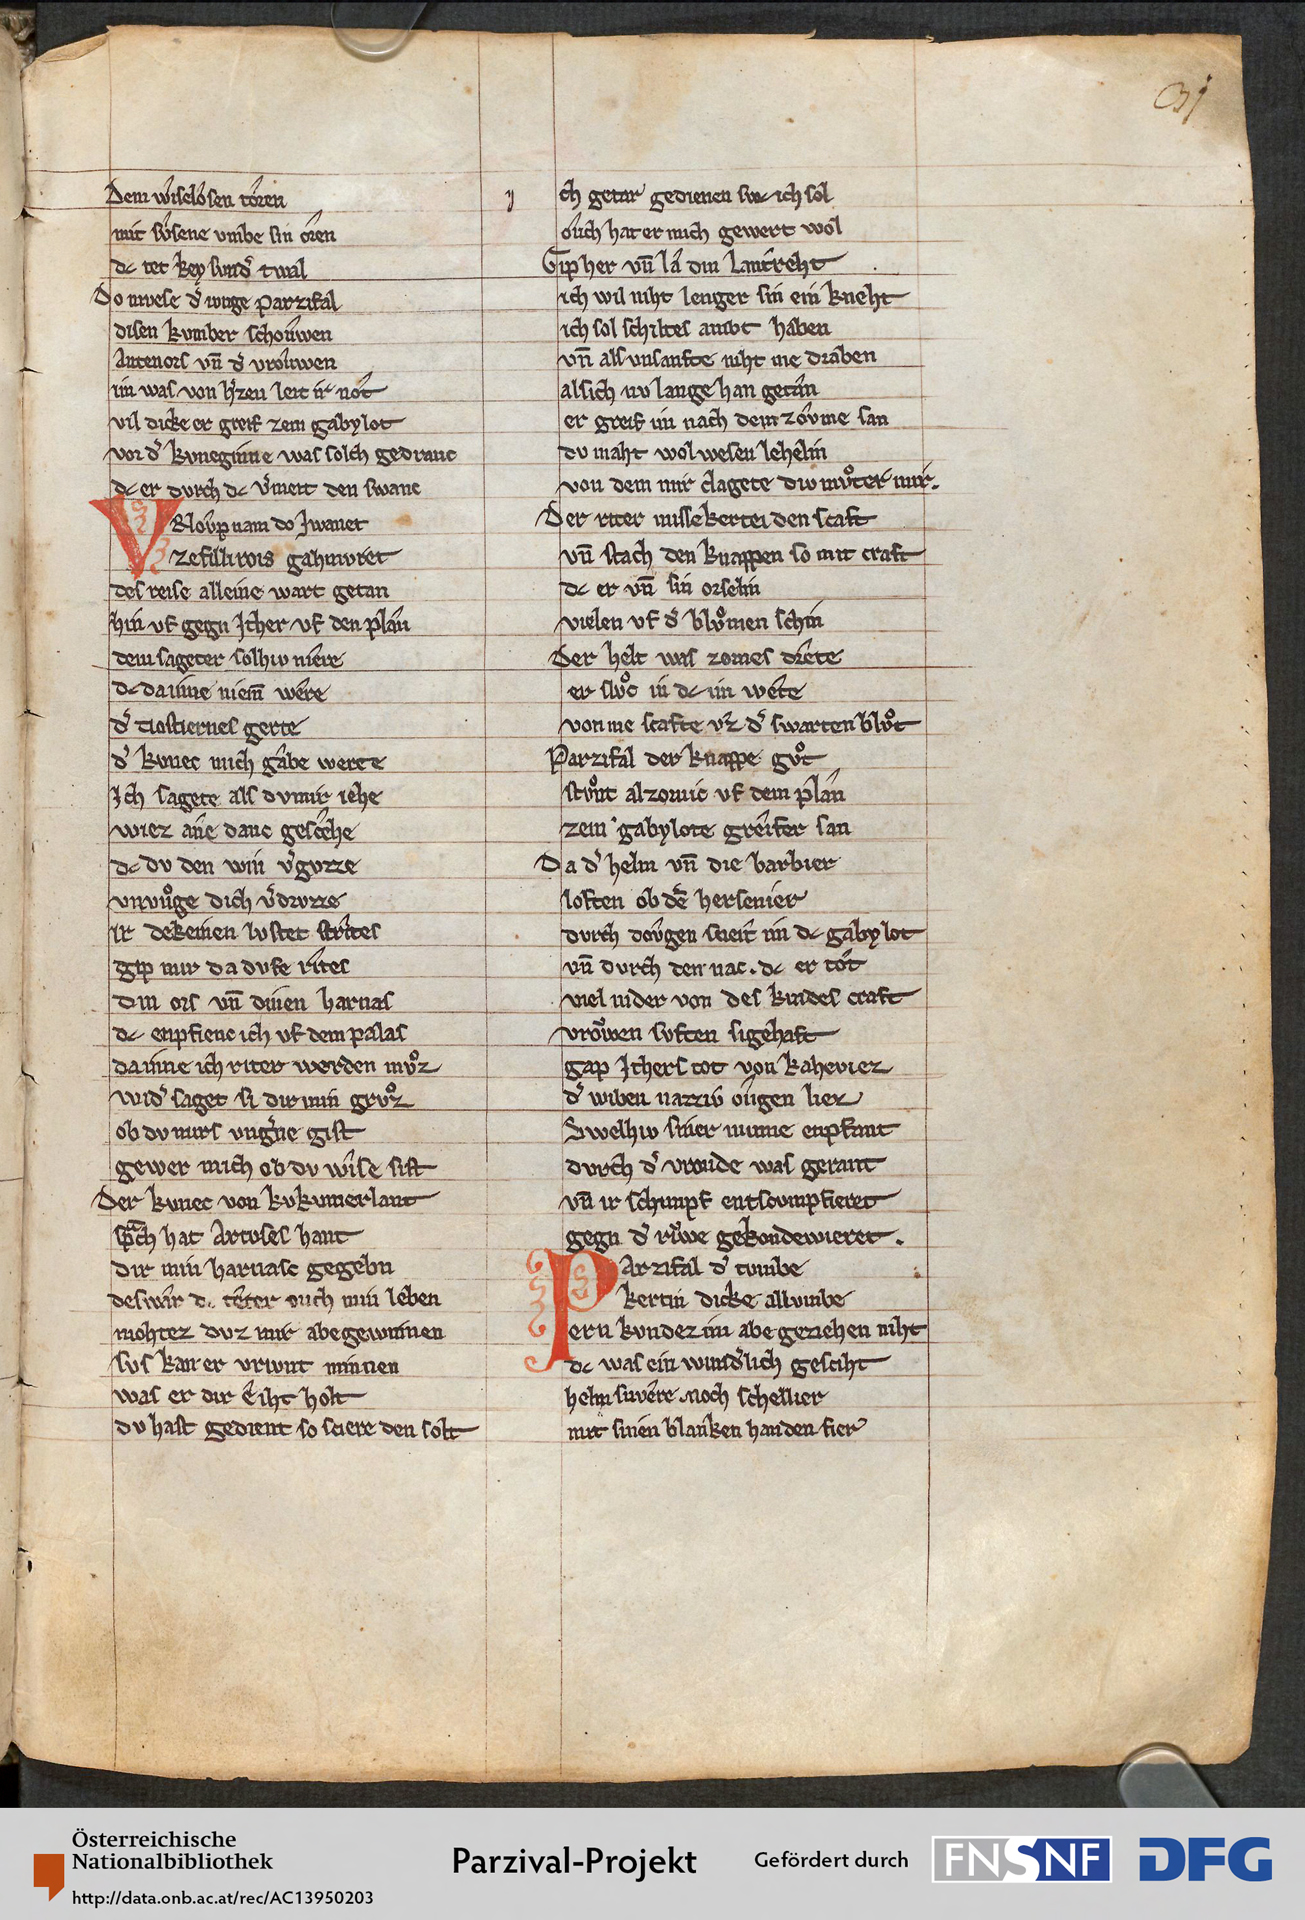 31
Dem wiselosen toren
mit slegene vmbe sin oren
dc tet key svnd͛ twal
Do mvese d͛ ivnge parzifal
disen kvmber schouwen
Antenors vn̄ d͛ vrouwen
im was von h͛zen leit ir not
vil dicke er greif zem gabylot
vor d͛ kvneginne was solch gedranc
dc er dvrch dc v͛meit den swanc
VRlovp nam do Jwanet
ze fillirois gahmvret
des reise alleine wart getan
Hin vf gegn Jther vf den plan
dem sageter solhiv niere
dc da inne niem̄ were
d͛ tiostiernes gerte
d͛ kvnec mich gabe werte
Ich sagete als dv mir iehe
wiez ane danc geschehe
dc dv den win v͛gvzze
vnvuͦge dich v͛drvzze
ir dekeinen lvstet strites
gip mir da dvfe rites
din ors vn̄ dinen harnas
dc enpfienc ich vf dem palas
da inne ich riter werden mvͦz
wid͛ saget si dir min grvͦz
ob dv mirs vng͛ne gist
gewer mich ob dv wise sist
Der kvnec von kvkvmerlant
sprach hat Artvses hant
dir min harnasc gegebn
deswar dc teter ouch min leben
mohtez dvz mir abe gewinnen
svs kan er vrivnt minnen
was er dir e iht holt
dv hast gedient so sciere den solt
Ich getar gedienen swc ich sol
ouch hat er mich gewert wol
Gip her vn̄ la din lantreht
ich wil niht lenger sin ein kneht
ich sol schiltes ambt haben
vn̄ als vnsanfte niht me draben
als ich nv lange han getan
er greif im nach dem zovme san
dv maht wol wesen lehelin
von dem mir clagete div mvͦter mir.
Der riter missekertei den scaft
vn̄ stach den knappen so mit craft
dc er vn̄ sin orselin
vielen vf d͛ blvͦmen schin
Der helt was zornes drete
er slvͦc in dc im wete
vonme scafte vz d͛ swarten blvͦt
Parzifal der knappe gvͦt
stvͦnt al zornic vf dem plan
zem gabylote greifer san
Da d͛ helm vn̄ die barbier
loften ob dē hersenier
dvrch dovgen sciert im dc gabylot
vn̄ dvrch den nac. dc er tot
viel nider von des kindes craft
vrouwen svften sigehaft
gap Jthers tot von kaheviez
d͛ wiben nazziv ougen liez
Swelhiv siner minne enpfant
dvrch d͛ vroude was gerant
vn̄ ir schimpf entscvmpfieret
gegn d͛ riwe gekondewieret.
PArzifal d͛ tvmbe
kertin dicke allvmbe
ern kvndez im abe geziehen niht
dc was ein wund͛lich gesciht
helm snvere noch schellier
mit sinen blanken handen fier
Österreichische
Nationalbibliothek
http://data.onb.ac.at/rec/AC13950203
Parzival-Projekt
Gefördert durch
FNSNF
DFG